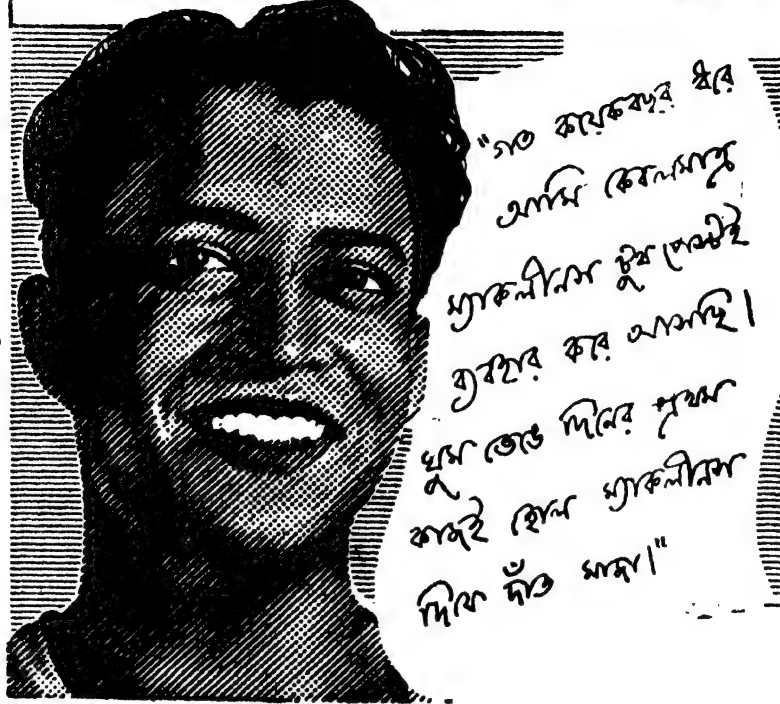 "গত কয়েকবছর ধরে
আমি কেবলমাত্র
ম্যাকলীনস টুথ পেস্টই
ব্যবহার করে আসছি।
ঘুম ভেঙে দিনের প্রথম
কাজই হোল ম্যাকলীনস
দিয়ে দাঁত মাজা।"